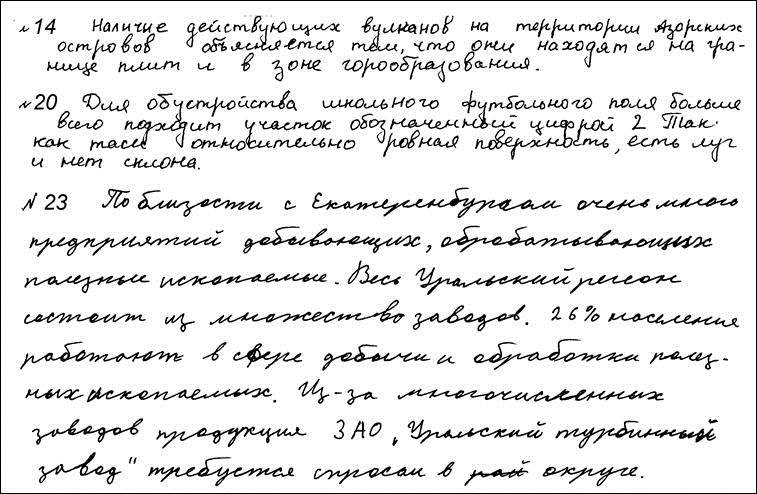 №14 Наличие действующих вулканов на территории Азорских
островов объясняется тем, что они находятся на гра-
нице плит и в зоне горообразования.
№20 Для обустройства школьного футбольного поля больше
всего подходит участок обозначенный цифрой 2 Так
как там относительно ровная поверхность, есть луг
и нет склона.
№23 По близости с Екатеренбургом очень много
предприятий добывающих, обрабатывающих
полезные ископаемые. Весь Уральский регион
состоит из множество заводов. 26% население
работают в сфере добычи и обработки полез-
ных ископаемых. Из-за многочисленных
заводов продукция ЗАО „Уральский турбинный
завод" требуется спросом в округе.